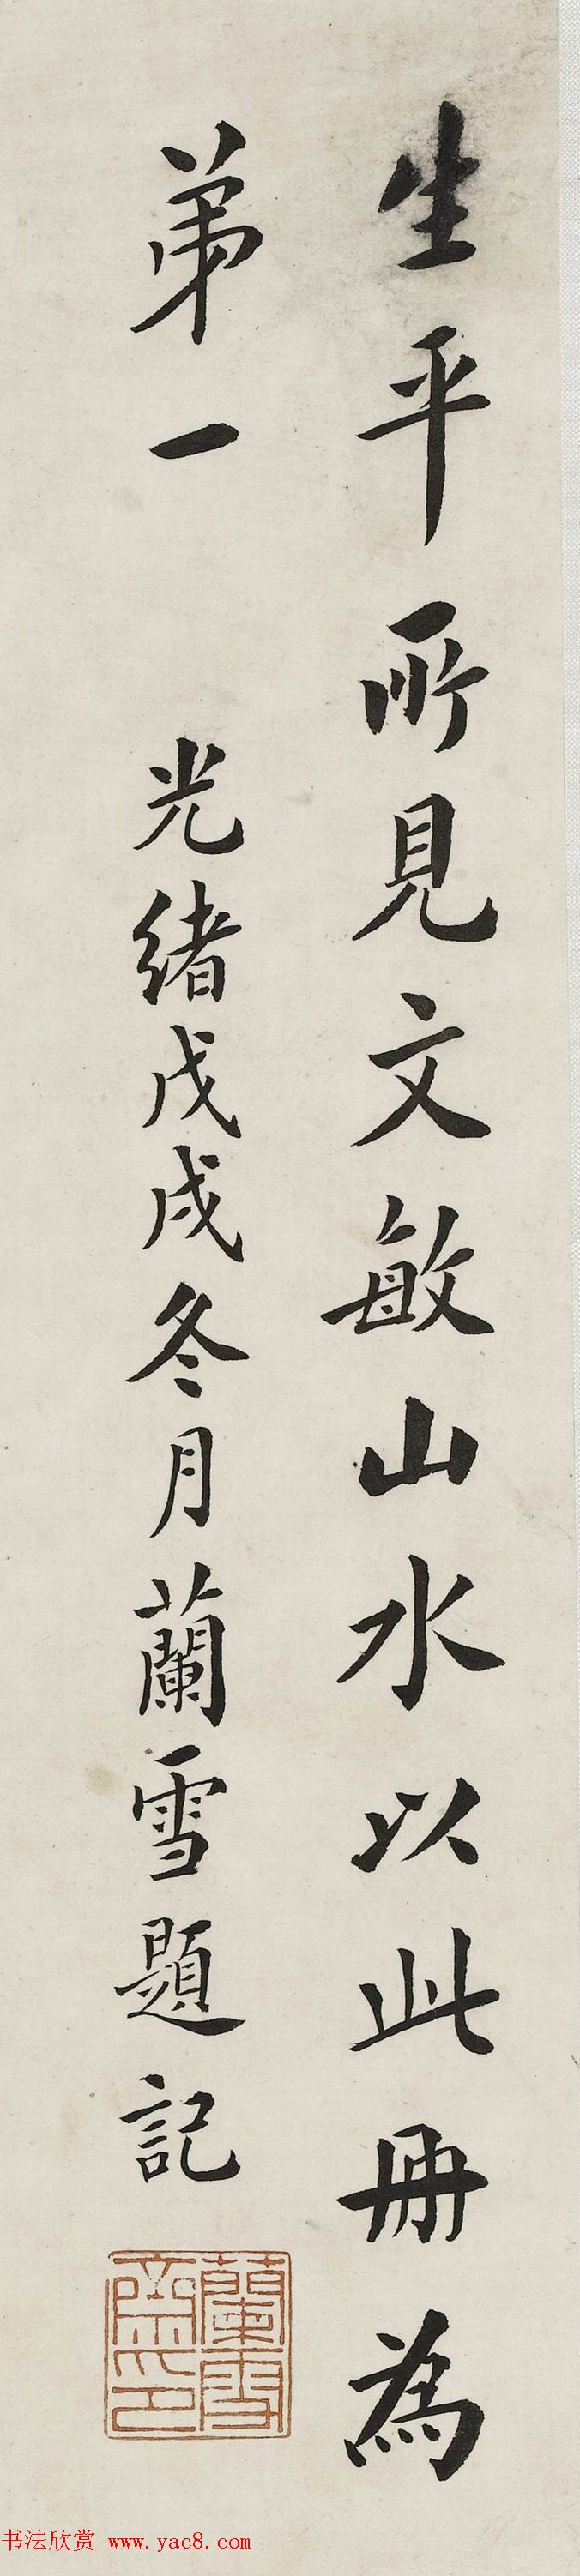 生平所見文敏山水以此冊為
弟一
光緒戊戌冬月蘭雪題記
蘭雪
齋印
书法欣赏 www.yac8.com